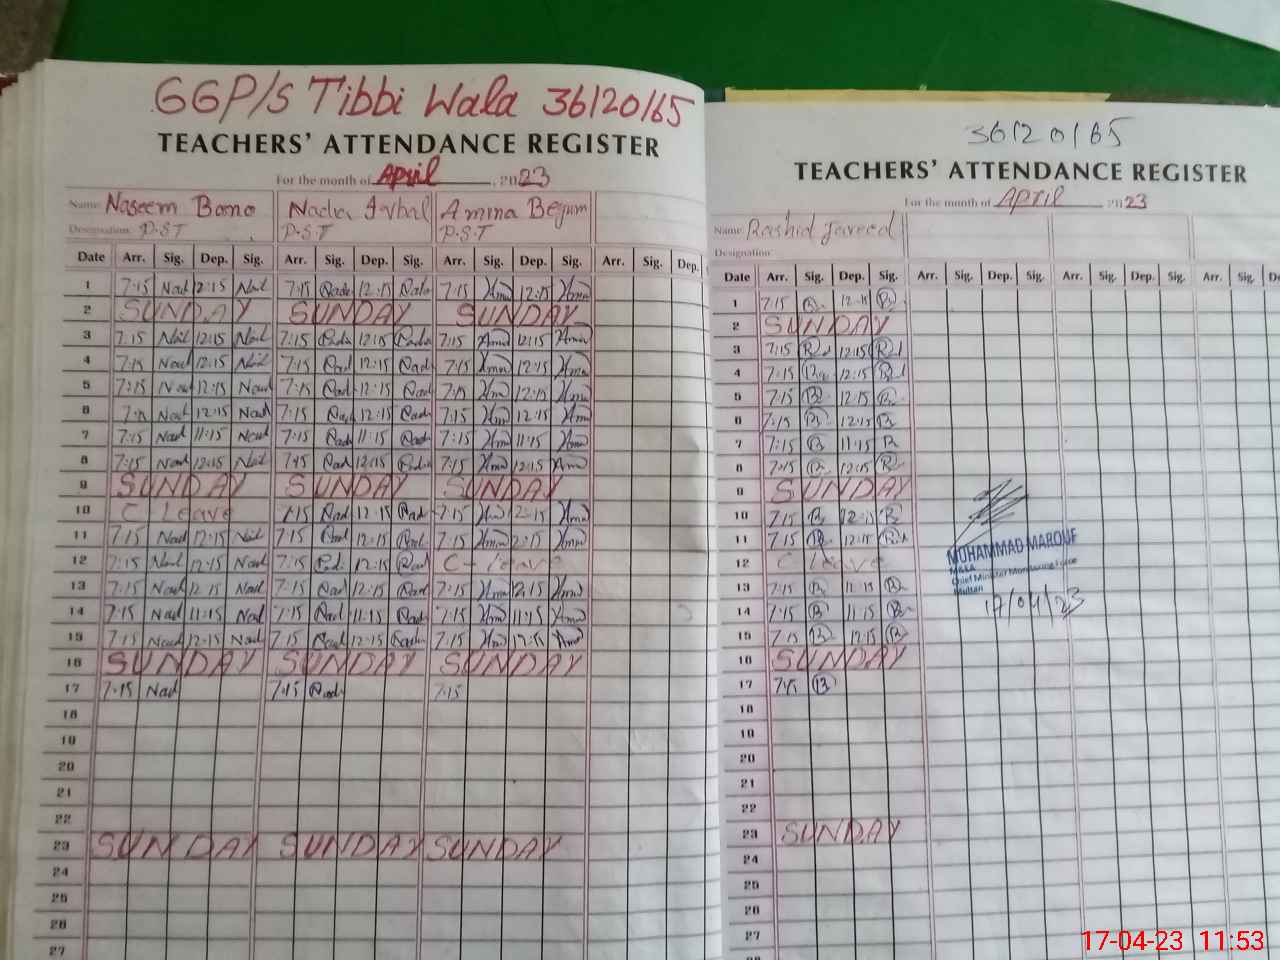 GGP/S Tibbi Wala 36120165
TEACHERS' ATTENDANCE REGISTER
For the month of April, 2023
Name Naseem Bano Nadia Iqbal Amina Begum
Designation P.S.T P.S.T P.S.T
Date Arr. Sig. Dep. Sig. Arr. Sig. Dep. Sig. Arr. Sig. Dep. Sig. Arr. Sig. Dep.
1 7:15 12:15 7:15 12:15 7:15 12:15
2 SUNDAY SUNDAY SUNDAY
3 7:15 12:15 7:15 12:15 7:15 12:15
4 7:15 12:15 7:15 12:15 7:15 12:15
5 7:15 12:15 7:15 12:15 7:15 12:15
6 7:15 12:15 7:15 12:15 7:15 12:15
7 7:15 11:15 7:15 11:15 7:15 11:15
8 7:15 12:15 7:15 12:15 7:15 12:15
9 SUNDAY SUNDAY SUNDAY
10 C Leave 7:15 12:15 7:15 12:15
11 7:15 12:15 7:15 12:15 7:15 12:15
12 7:15 12:15 7:15 12:15 C-leave
13 7:15 12:15 7:15 12:15 7:15 12:15
14 7:15 11:15 7:15 11:15 7:15 11:15
15 7:15 12:15 7:15 12:15 7:15 12:15
16 SUNDAY SUNDAY SUNDAY
17 7:15 7:15 7:15
18
19
20
21
22
23 SUNDAY SUNDAY SUNDAY
24
25
26
27
36120165
TEACHERS' ATTENDANCE REGISTER
For the month of APRIL 2023
Name Rashid Javeed
Designation
Date Arr. Sig. Dep. Sig. Arr. Sig. Dep. Sig. Arr. Sig. Dep. Sig. Arr. Sig. D
1 7:15 12:15
2 SUNDAY
3 7:15 12:15
4 7:15 12:15
5 7:15 12:15
6 7:15 12:15
7 7:15 11:15
8 7:15 12:15
9 SUNDAY
10 7:15 12:15
11 7:15 12:15
12 C leave
13 7:15 11:15
14 7:15 11:15
15 7:15 12:15
16 SUNDAY
17 7:15
18
19
20
21
22
23 SUNDAY
24
25
26
27
MUHAMMAD MAROUF
M&EA
Chief Minister Monitoring Force
Multan
17/04/23
17-04-23 11:53